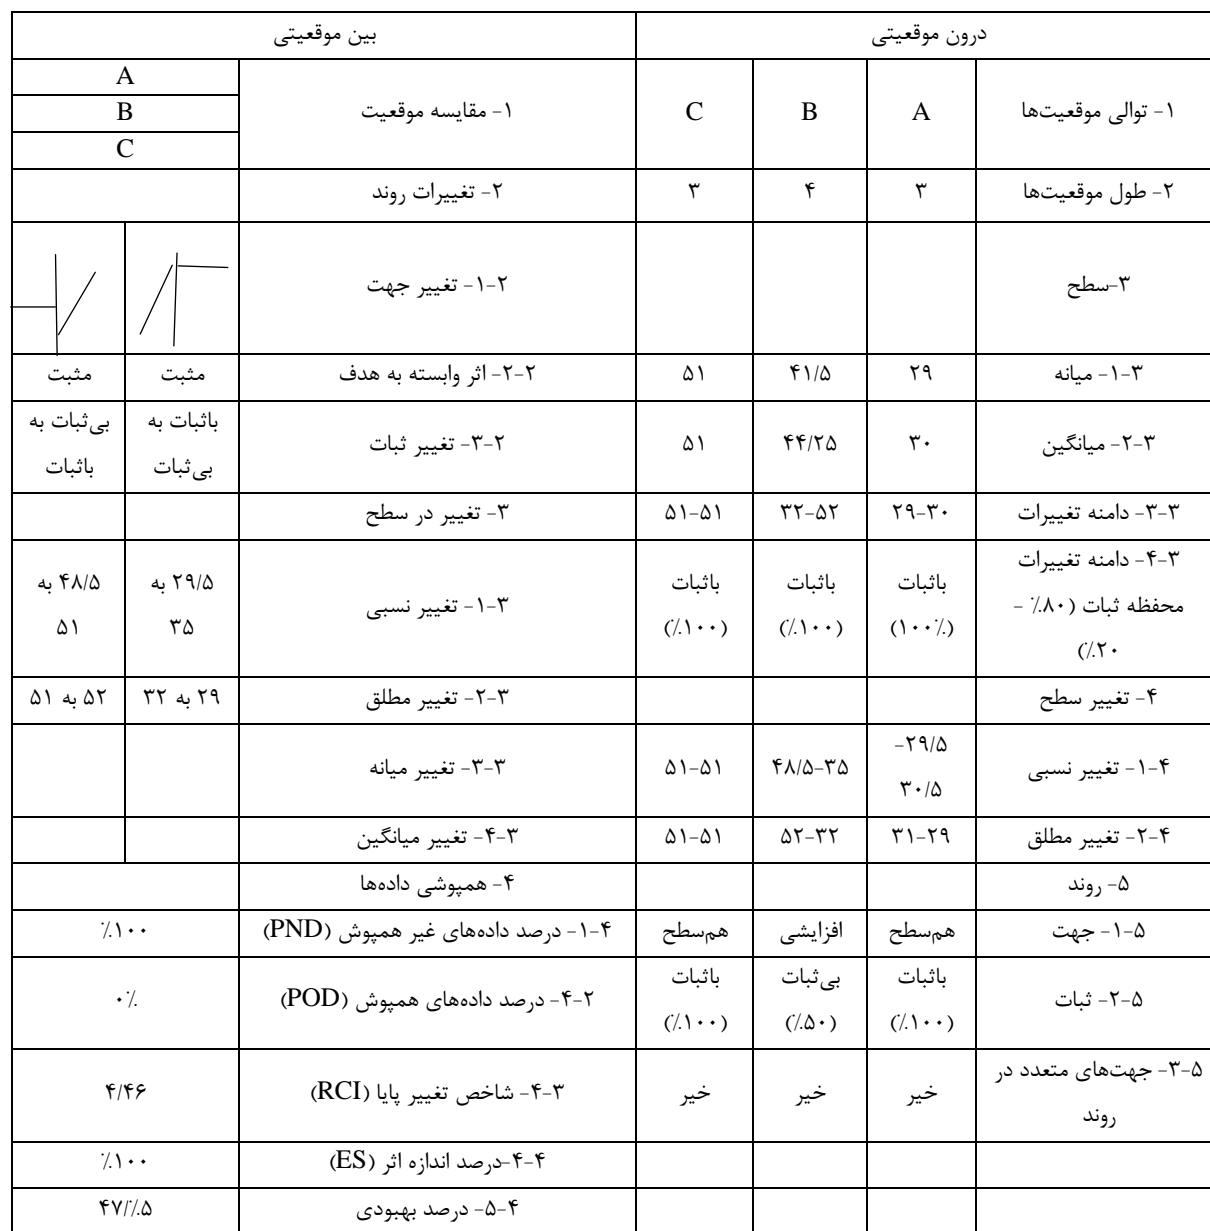 درون موقعیتی
بین موقعیتی
۱- توالی موقعیت‌ها
A
B
C
۱- مقایسه موقعیت
A
B
C
۲- طول موقعیت‌ها
۳
۴
۳
۲- تغییرات روند
۳-سطح
۲-۱- تغییر جهت
۳-۱- میانه
۲۹
۴۱/۵
۵۱
۲-۲- اثر وابسته به هدف
مثبت
مثبت
۳-۲- میانگین
۳۰
۴۴/۲۵
۵۱
۲-۳- تغییر ثبات
باثبات به
بی‌ثبات
بی‌ثبات به
باثبات
۳-۳- دامنه تغییرات
۲۹-۳۰
۳۲-۵۲
۵۱-۵۱
۳- تغییر در سطح
۳-۴- دامنه تغییرات
محفظه ثبات (۸۰٪ -
۲۰٪)
باثبات
(۱۰۰٪)
باثبات
(۱۰۰٪)
باثبات
(۱۰۰٪)
۳-۱- تغییر نسبی
۲۹/۵ به
۳۵
۴۸/۵ به
۵۱
۴- تغییر سطح
۳-۲- تغییر مطلق
۲۹ به ۳۲
۵۲ به ۵۱
۴-۱- تغییر نسبی
۲۹/۵-
۳۰/۵
۴۸/۵-۳۵
۵۱-۵۱
۳-۳- تغییر میانه
۴-۲- تغییر مطلق
۳۱-۲۹
۵۲-۳۲
۵۱-۵۱
۳-۴- تغییر میانگین
۵- روند
۴- همپوشی داده‌ها
۵-۱- جهت
هم‌سطح
افزایشی
هم‌سطح
۴-۱- درصد داده‌های غیر همپوش (PND)
۱۰۰٪
۵-۲- ثبات
باثبات
(۱۰۰٪)
بی‌ثبات
(۵۰٪)
باثبات
(۱۰۰٪)
۴-۲- درصد داده‌های همپوش (POD)
۰٪
۵-۳- جهت‌های متعدد در
روند
خیر
خیر
خیر
۴-۳- شاخص تغییر پایا (RCI)
۴/۴۶
۴-۴-درصد اندازه اثر (ES)
۱۰۰٪
۴-۵- درصد بهبودی
۴۷/٪۵